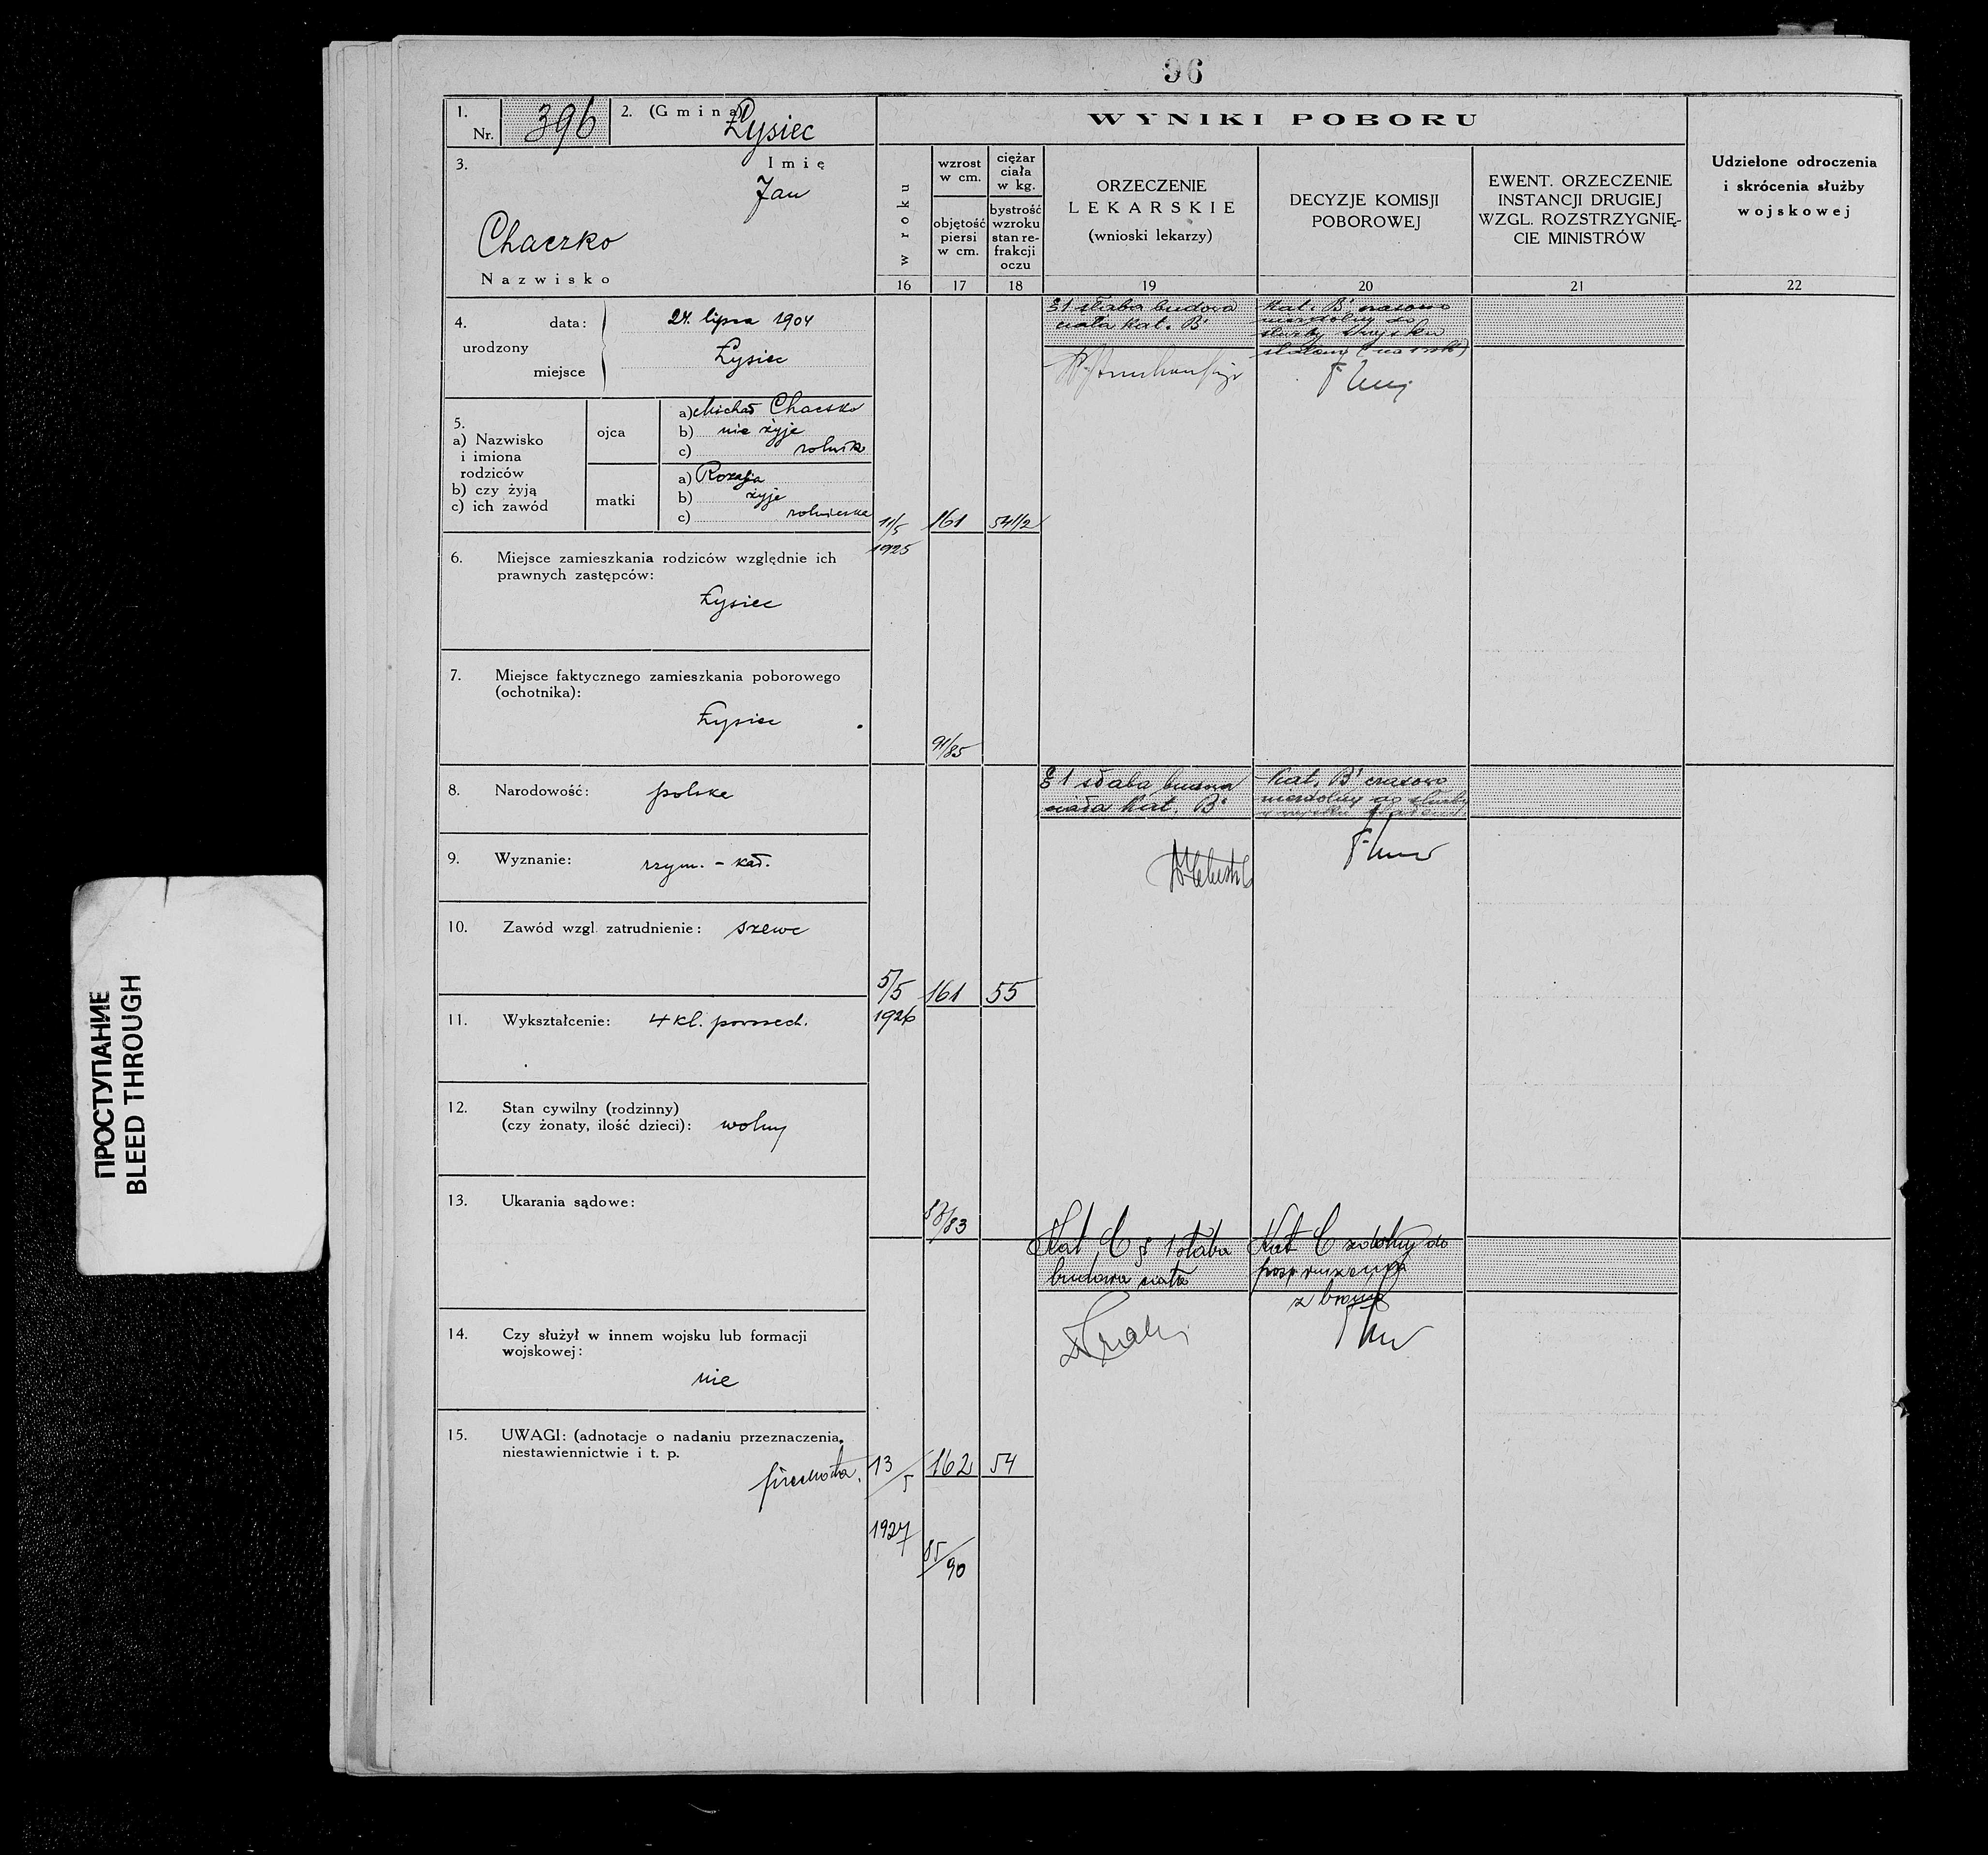 96
1.
Nr. 396
2. (Gmina) Łysiec
3. Imię
Jan
Chaczko
Nazwisko
4. urodzony
data: 24. lipca 1904
miejsce Łysiec
5.
a) Nazwisko
i imiona
rodziców
b) czy żyją
c) ich zawód
ojca
a) Michał Chaczko
b) nie żyje
c) rolnik
matki
a) Rozalia
b) żyje
c) rolniczka
6. Miejsce zamieszkania rodziców względnie ich
prawnych zastępców:
Łysiec
7. Miejsce faktycznego zamieszkania poborowego
(ochotnika):
Łysiec
8. Narodowość: polska
9. Wyznanie: rzym. - kat.
10. Zawód wzgl. zatrudnienie: szewc
11. Wykształcenie: 4 kl. powszech.
12. Stan cywilny (rodzinny)
(czy żonaty, ilość dzieci): wolny
13. Ukarania sądowe:
14. Czy służył w innem wojsku lub formacji
wojskowej:
nie
15. UWAGI: (adnotacje o nadaniu przeznaczenia,
niestawiennictwie i t. p.
piechota.
WYNIKI POBORU
w roku
16
wzrost
w cm.
objętość
piersi
w cm.
17
ciężar
ciała
w kg.
bystrość
wzroku
stan re-
frakcji
oczu
18
ORZECZENIE
LEKARSKIE
(wnioski lekarzy)
19
DECYZJE KOMISJI
POBOROWEJ
20
EWENT. ORZECZENIE
INSTANCJI DRUGIEJ
WZGL. ROZSTRZYGNIĘ-
CIE MINISTRÓW
21
Udzielone odroczenia
i skrócenia służby
wojskowej
22
11/5
1925
161
54 1/2
91/85
§ 1 słaba budowa
ciała Kat. B
Kat. B czasowo
niezdolny do
służby w wojsku
stałem (na 1 rok)
5/5
1926
161
55
87/83
§ 1 słaba budowa
ciała Kat. B
Kat. B czasowo
niezdolny do służby
w wojsku stałem
13/5
1927
162
54
85/90
Kat C § 1 słaba
budowa ciała
Kat C zdolny do
posp. ruszenia
z bronią
ПРОСТУПАНИЕ
BLEED THROUGH